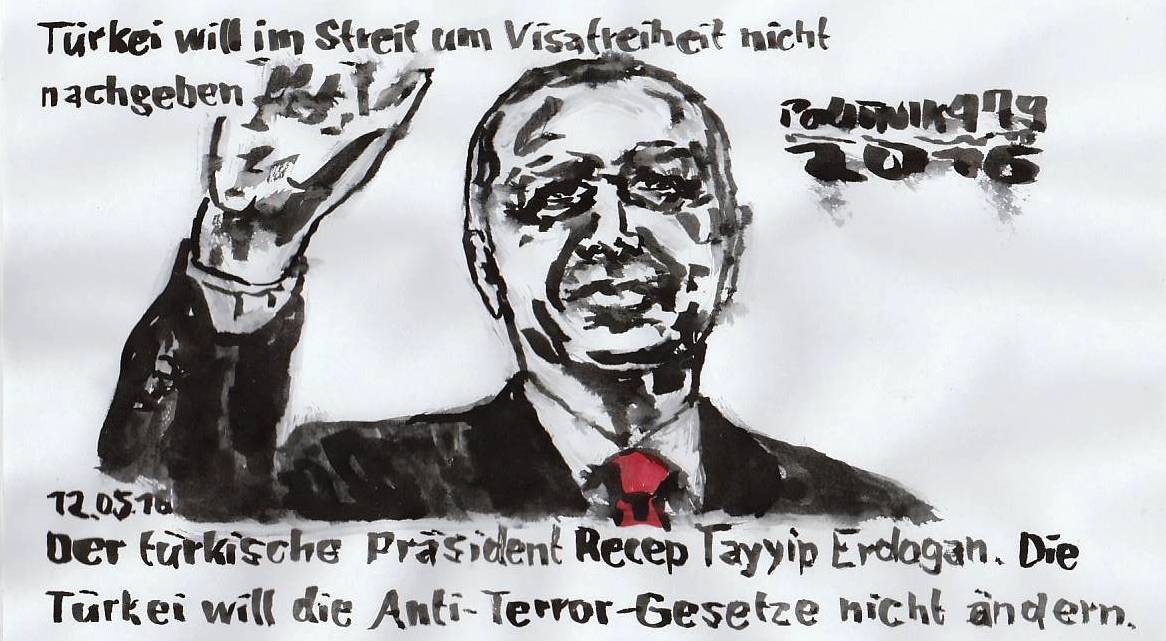 Türkei will im Streit um Visafreiheit nicht
nachgeben
2016
12.05.16
Der türkische Präsident Recep Tayyip Erdogan. Die
Türkei will die Anti-Terror-Gesetze nicht ändern.